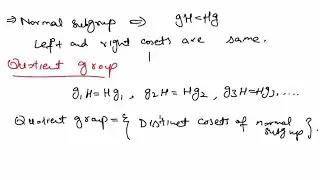 ⇒ Normal subgroup ⇔ gH=Hg
Left and right cosets are same.
Quotient group
g₁H=Hg₁, g₂H=Hg₂, g₃H=Hg₃,....
Quotient group={ Distinct cosets of normal subgroup}.